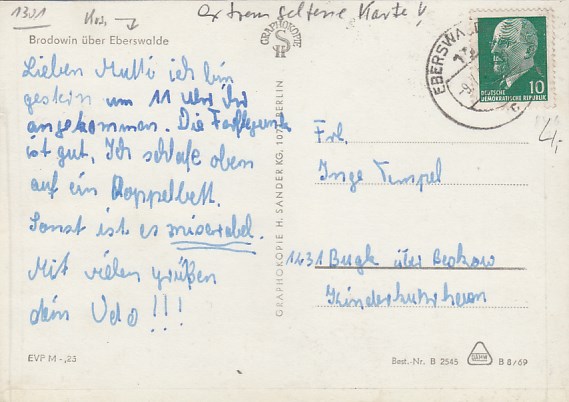 1301 Kos.
extrem seltene Karte!
Brodowin über Eberswalde
Lieben Mutti ich bin
gestern um 11 Uhr hir
angekommen. Die
ist gut. Ich schlafe oben
auf ein Doppelbett.
Sonst ist es miserabel.
Mit vielen grüßen
dein Udo!!!
EVP M -,25
GRAPHOKOPIE
GRAPHOKOPIE H. SANDER KG, 1071 BERLIN
EBERSWALDE
10
DEUTSCHE
DEMOKRATISCHE REPUBLIK
4,-
Frl.
Inge Tempel
1431 Bugk über Beskow
Kinderkurheim
Best.-Nr. B 2545
B 8/69